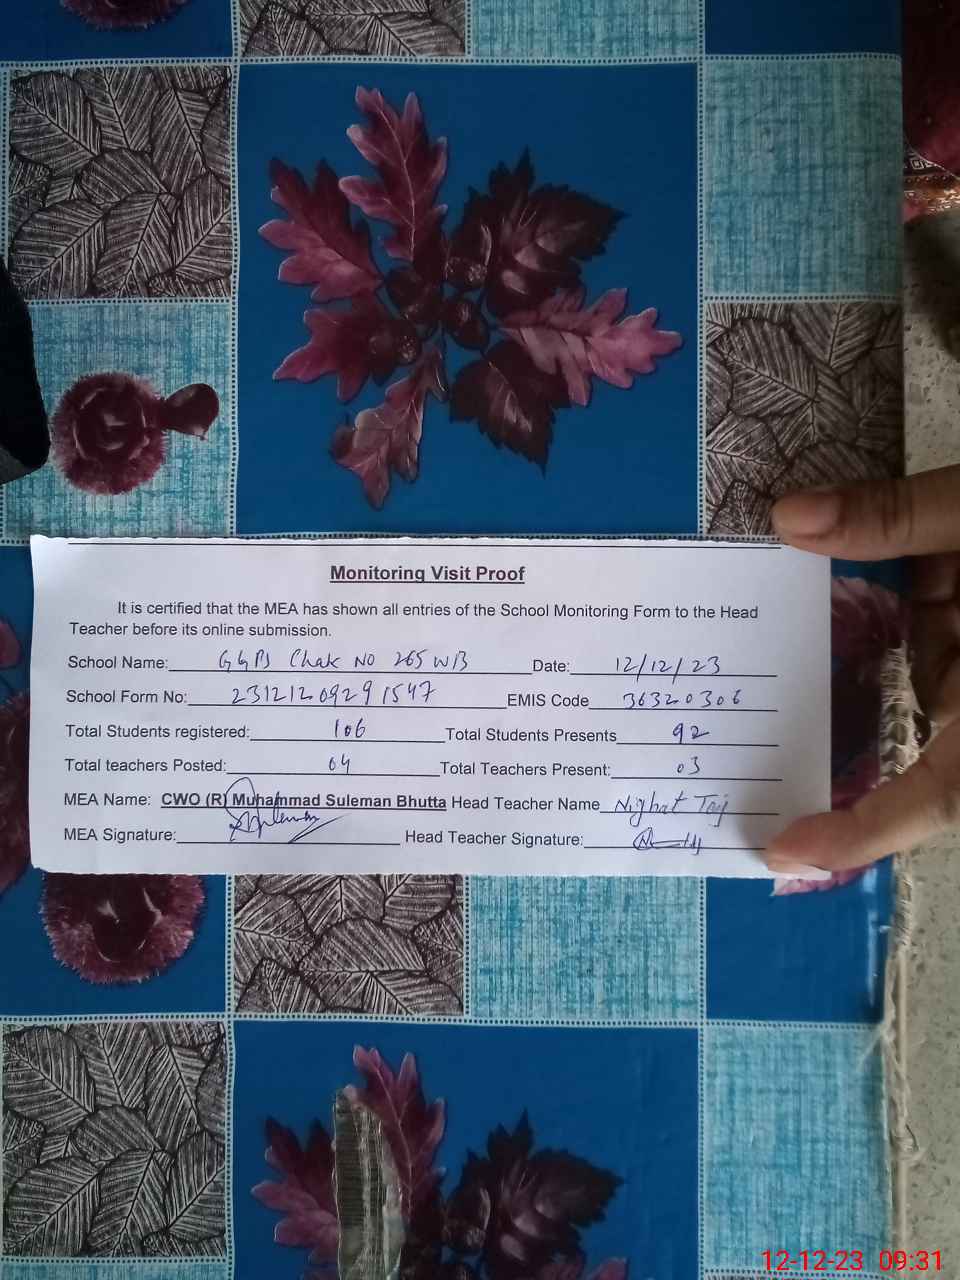 Monitoring Visit Proof
It is certified that the MEA has shown all entries of the School Monitoring Form to the Head
Teacher before its online submission.
School Name: GGPS Chak NO 265 WB Date: 12/12/23
School Form No: 23121209291547 EMIS Code 36320306
Total Students registered: 106 Total Students Presents 92
Total teachers Posted: 04 Total Teachers Present: 03
MEA Name: CWO (R) Muhammad Suleman Bhutta Head Teacher Name Nighat Taj
MEA Signature: Head Teacher Signature:
12-12-23 09:31